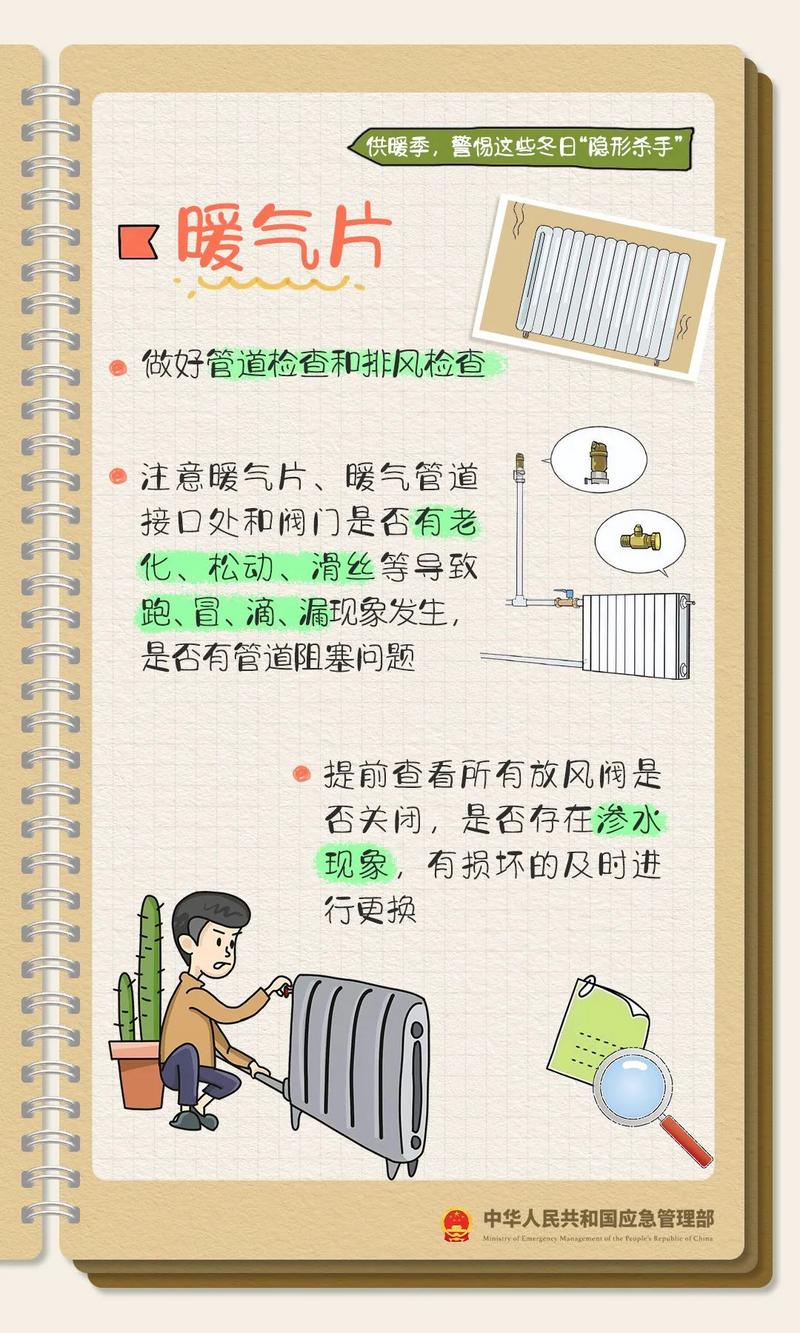 供暖季，警惕这些冬日“隐形杀手”
暖气片
做好管道检查和排风检查
注意暖气片、暖气管道
接口处和阀门是否有老
化、松动、滑丝等导致
跑、冒、滴、漏现象发生，
是否有管道阻塞问题
提前查看所有放风阀是
否关闭，是否存在渗水
现象，有损坏的及时进
行更换
中华人民共和国应急管理部
Ministry of Emergency Management of the People's Republic of China